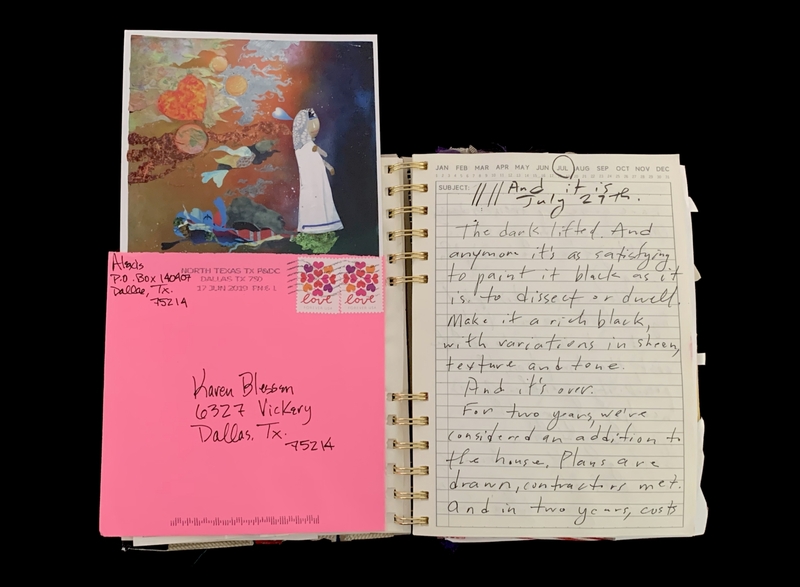 Alexis
P.O. Box 140407
Dallas, Tx.
75214
NORTH TEXAS TX P&DC
DALLAS TX 750
17 JUN 2019 PM 6 L
love
love
Karen Blessen
6327 Vickery
Dallas, Tx.
75214
JAN FEB MAR APR MAY JUN JUL AUG SEP OCT NOV DEC
SUBJECT:
And it is
July 29th.
The dark lifted. And
anymore it's as satisfying
to paint it black as it
is to dissect or dwell.
Make it a rich black,
with variations in sheen,
texture and tone.
And it's over.
For two years, we've
considered an addition to
the house. Plans are
drawn, contractors met.
And in two years, costs